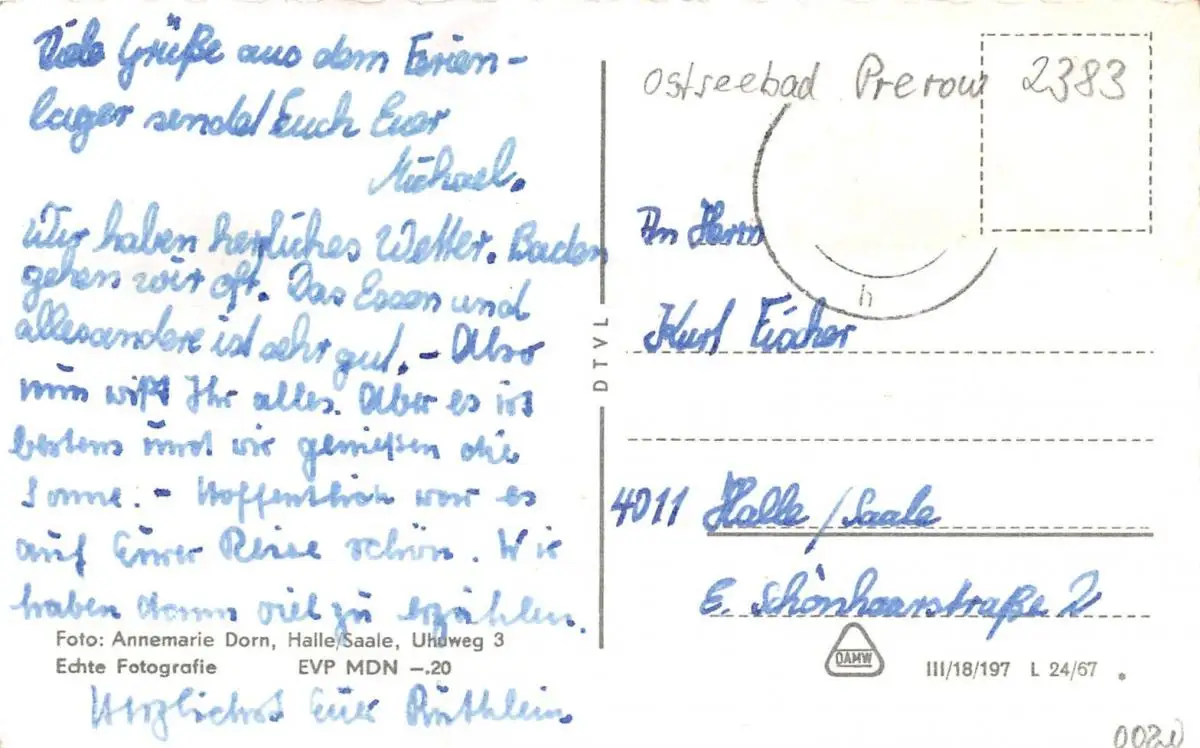 Viele Grüße aus dem Ferien-
lager sendet Euch Euer
Michael.
Wir haben herliches Wetter. Baden
gehen wir oft. Das Essen und
allesandere ist sehr gut. - Also
nun wißt Ihr alles. Aber es ist
bestens und wir genießen die
Sonne. - Hoffentlich war es
auf Eurer Reise schön. Wir
haben dann viel zu erzählen.
Foto: Annemarie Dorn, Halle/Saale, Uhuweg 3
Echte Fotografie EVP MDN -.20
Herzlichst Euer Ruthlein
DTVL
Ostseebad Prerow 2383
h
An Herrn
Kurt Fischer
4011 Halle/Saale
E. Schönhaarstraße 2
DAMW
III/18/197 L 24/67